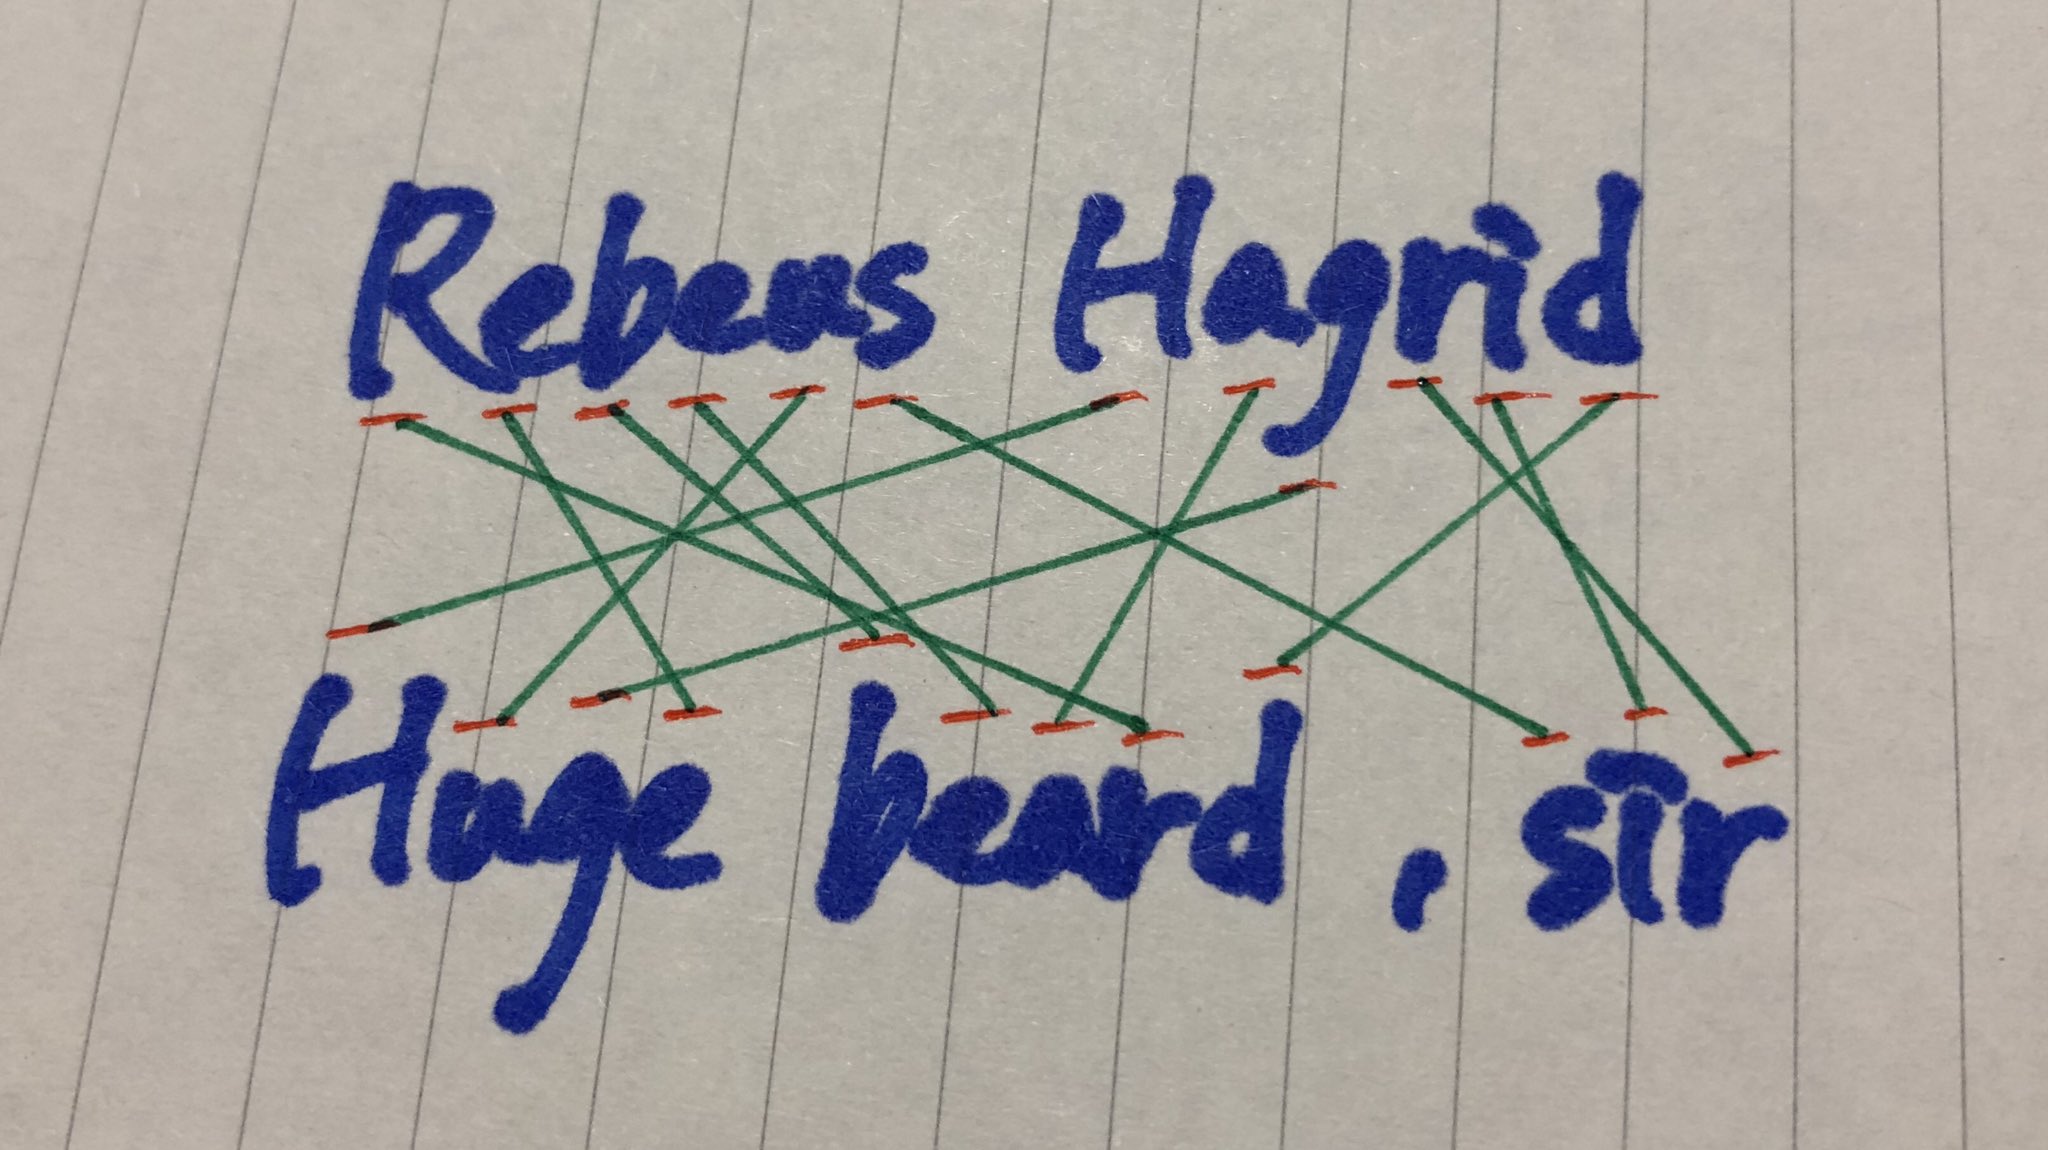 Rebeus Hagrid
Huge beard, sir